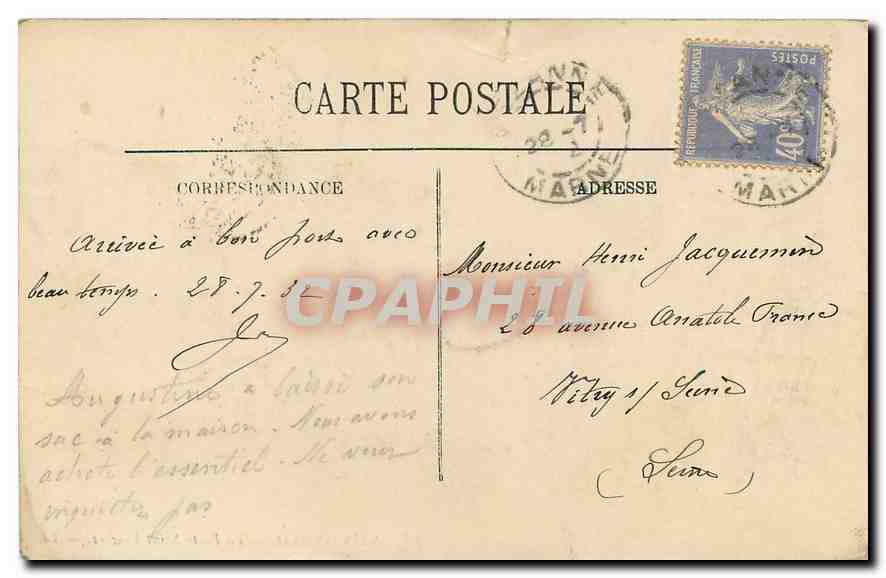 CARTE POSTALE
MARNE
28 -7
REPUBLIQUE FRANÇAISE
POSTES
40c
MARNE
CORRESPONDANCE
ADRESSE
Arrivée à bon port avec
beau temps. 28.7.32
Monsieur Henri Jacquemin
28 avenue Anatole France
Vitry s/ Seine
(Seine)
Augustine a laissé son
sac à la maison. Nous avons
acheté l'essentiel. Ne vous
inquiétez pas
CPAPHIL